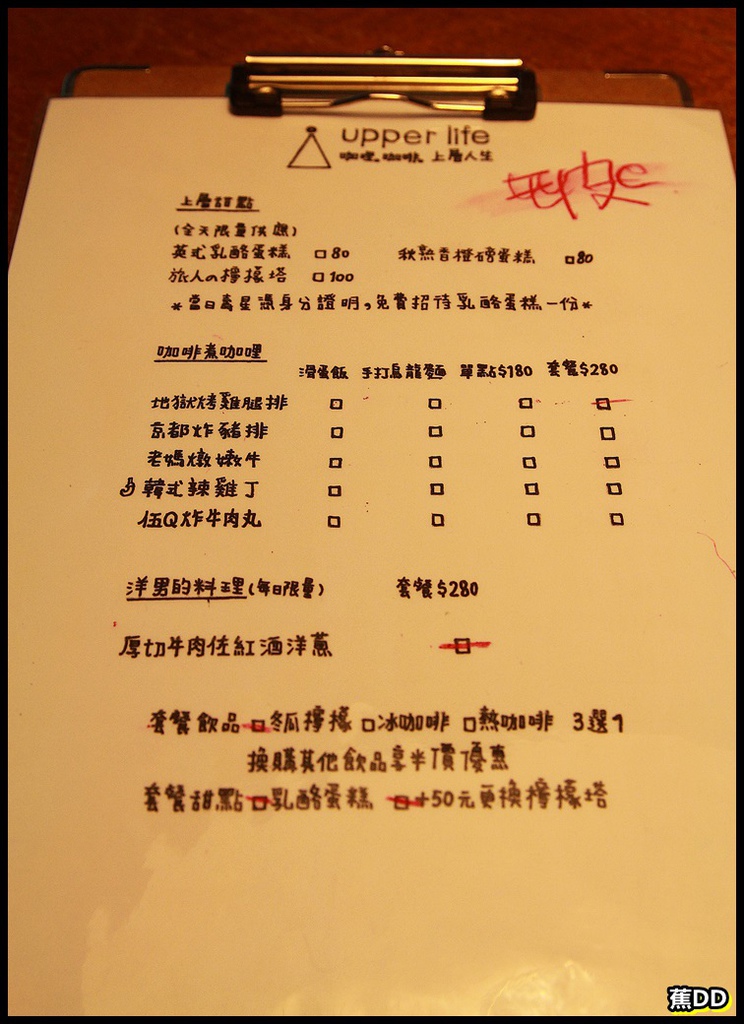 upper life
咖哩.咖啡.上層人生
上層甜點
(全天限量供應)
英式乳酪蛋糕 □80 秋熟香橙磅蛋糕 □80
旅人の檸檬塔 □100
*當日壽星憑身分證明,免費招待乳酪蛋糕一份*
咖啡煮咖哩
滑蛋飯 手打烏龍麵 單點$180 套餐$280
地獄烤雞腿排 □ □ □ □
京都炸豬排 □ □ □ □
老媽燉嫩牛 □ □ □ □
韓式辣雞丁 □ □ □ □
伍Q炸牛肉丸 □ □ □ □
洋男的料理(每日限量) 套餐$280
厚切牛肉佐紅酒洋蔥 □
套餐飲品 □冬瓜檸檬 □冰咖啡 □熱咖啡 3選1
換購其他飲品享半價優惠
套餐甜點 □乳酪蛋糕 □+50元更換檸檬塔
蕉DD